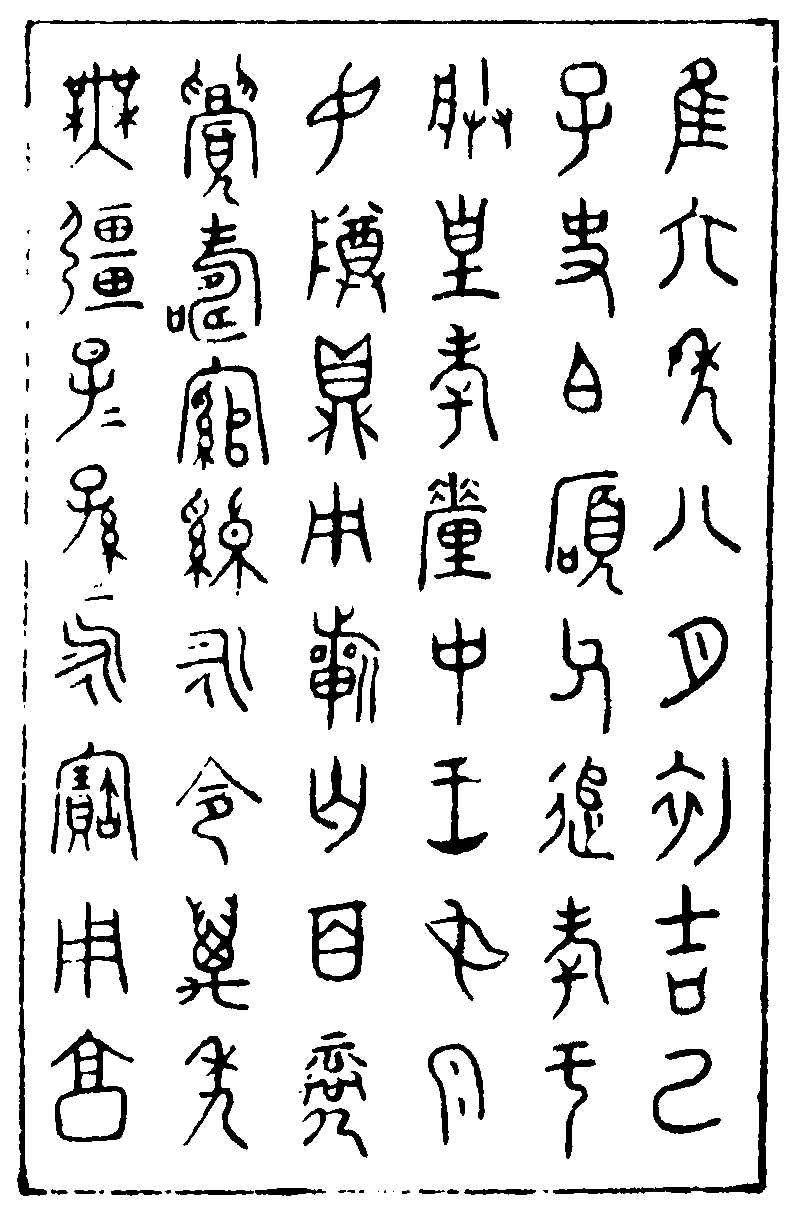 隹六年八月初吉己
子史白碩父追孝于
朕皇考釐中王母泉
母尊鼎用祈匄百彔
眉壽綰綽永令萬年
無彊子=孫=永寶用亯